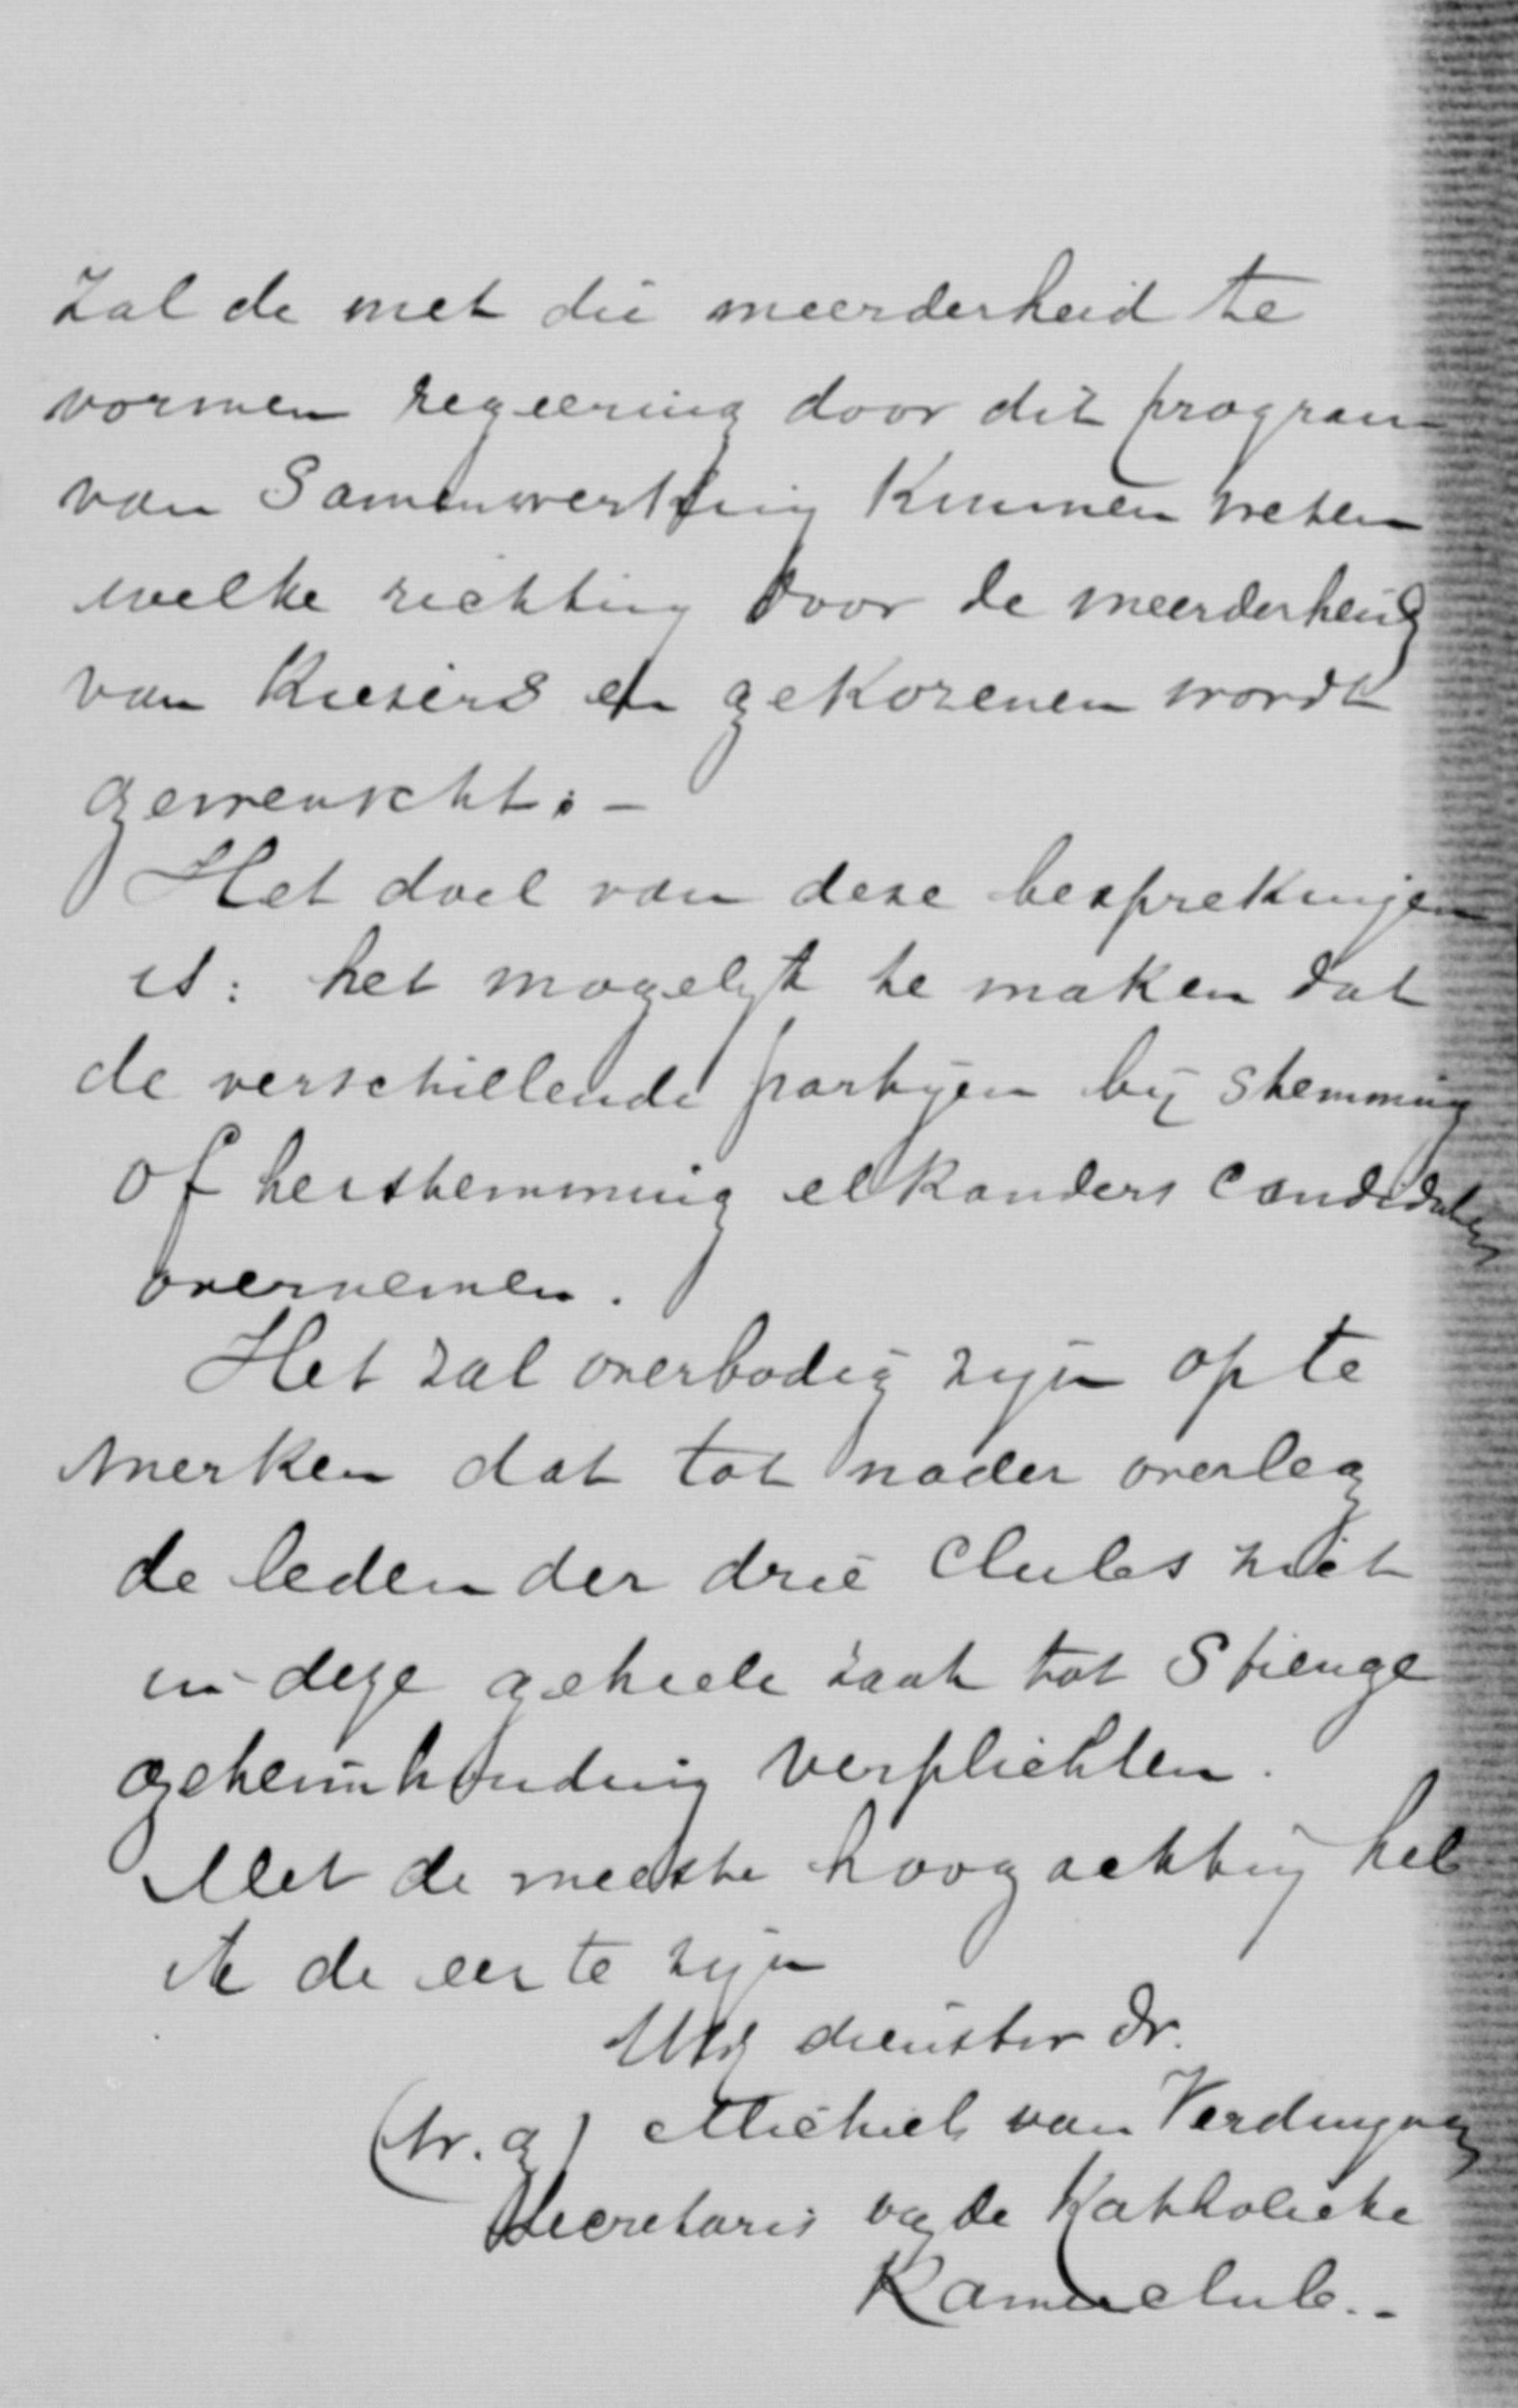 zal de met die meerderheid te
vormen regeering door dit program
van Samenwerking Kunnen weten
welke richting door de meerderheid
van Kiezers en gekozenen wordt
gewenscht. -
Het doel van deze besprekingen
is: het mogelijk te maken dat
de verschillende partijen bij stemming
of herstemming elkanders candidaten
overnemen.
Het zal overbodig zijn op te
merken dat tot nader overleg
de leden der drie Clubs zich
in deze geheele zaak tot Strenge
geheimhouding verplichten.
Met de meeste hoogachting heb
ik de eer te zijn
Uw dienstw dr.
(w.g) Michiels van Verduynen
Secretaris v de Katholieke
Kamerclub. -